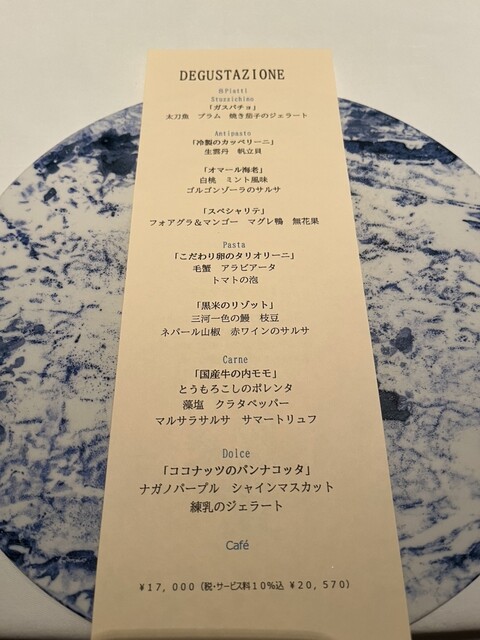 DEGUSTAZIONE
8Piatti
Stuzzichino
「ガスパチョ」
太刀魚 プラム 焼き茄子のジェラート
Antipasto
「冷製のカッペリーニ」
生雲丹 帆立貝
「オマール海老」
白桃 ミント風味
ゴルゴンゾーラのサルサ
「スペシャリテ」
フォアグラ＆マンゴー マグレ鴨 無花果
Pasta
「こだわり卵のタリオリーニ」
毛蟹 アラビアータ
トマトの泡
「黒米のリゾット」
三河一色の鰻 枝豆
ネパール山椒 赤ワインのサルサ
Carne
「国産牛の内モモ」
とうもろこしのポレンタ
藻塩 クラタペッパー
マルサラサルサ サマートリュフ
Dolce
「ココナッツのパンナコッタ」
ナガノパープル シャインマスカット
練乳のジェラート
Café
¥17,000（税・サービス料10％込 ¥20,570）